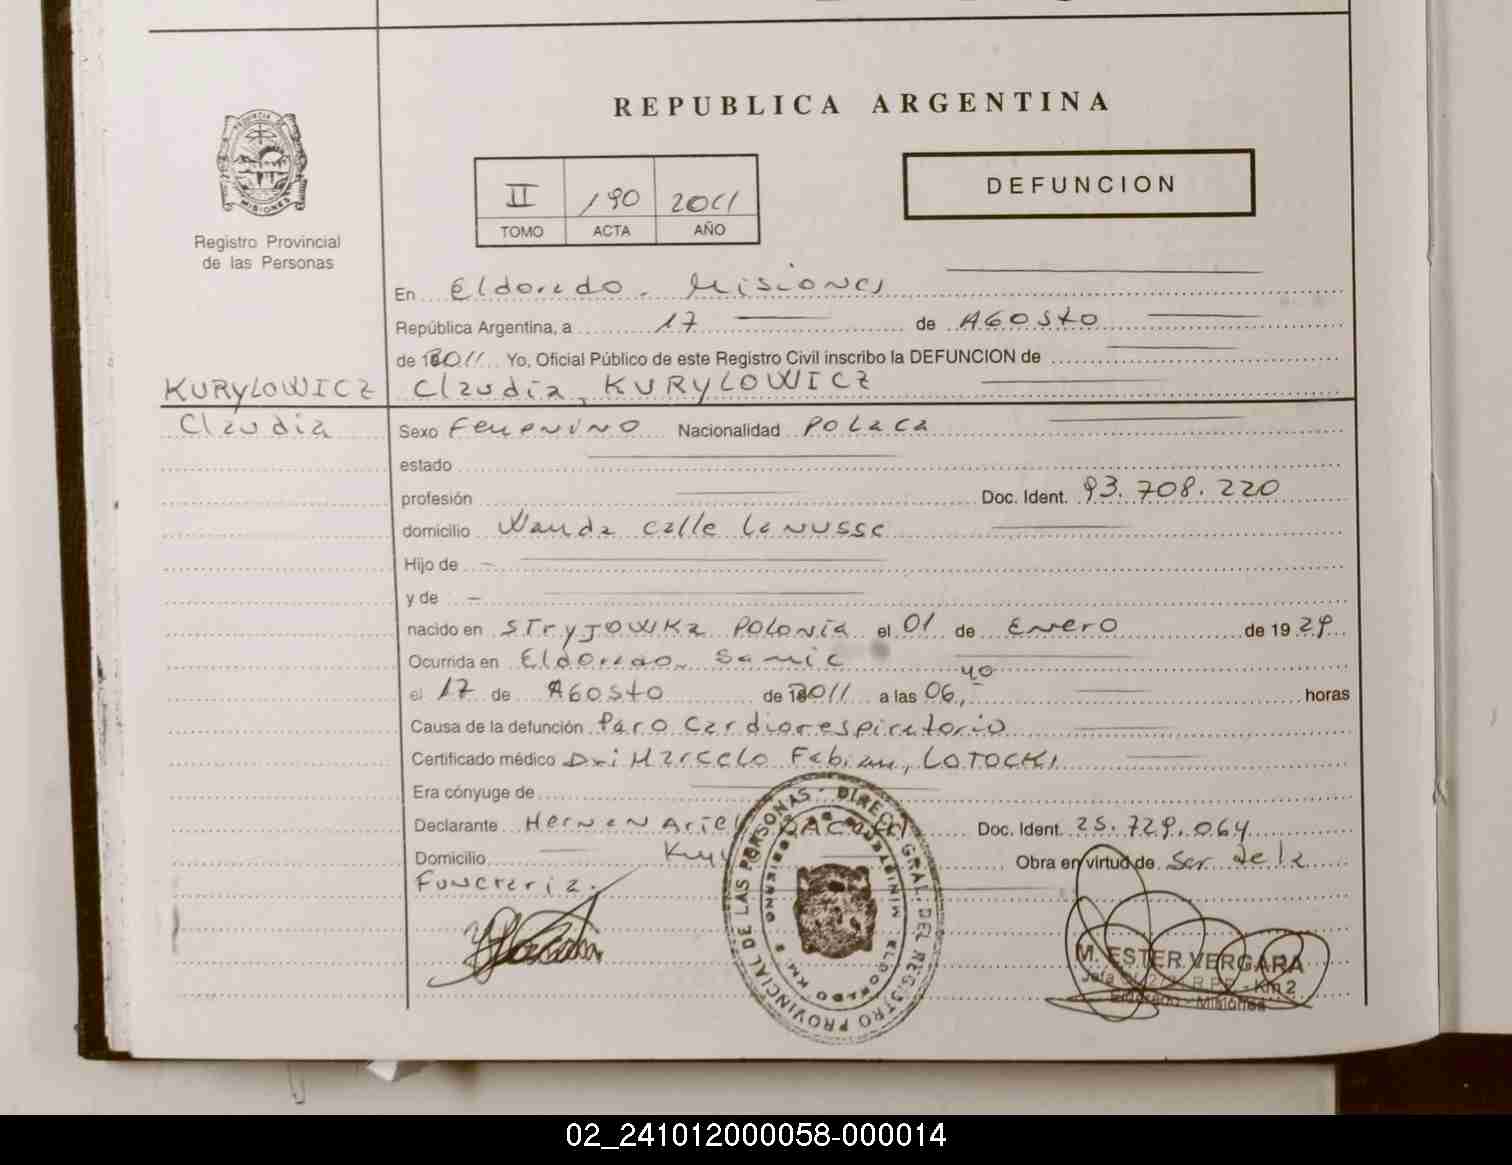 REPUBLICA ARGENTINA
PROVINCIA DE MISIONES
Registro Provincial
de las Personas
II 190 2011
TOMO ACTA AÑO
DEFUNCION
En Eldorado. Misiones
República Argentina, a 17 de AGOSTO
de 2011 Yo, Oficial Público de este Registro Civil inscribo la DEFUNCION de
KURYLOWICZ Claudia, KURYLOWICZ
Claudia
Sexo Femenino Nacionalidad POLaca
estado
profesión Doc. Ident. 93.708.220
domicilio Wanda calle Lanusse
Hijo de
y de
nacido en STryJOWKa POLONia el 01 de Enero de 1929
Ocurrida en Eldorado, Samic
el 17 de AGOSTO de 2011 a las 06,40 horas
Causa de la defunción Paro Cardiorespiratorio
Certificado médico Dr: Marcelo Fabian, LOTOCKI
Era cónyuge de
Declarante Hernan Ariel Doc. Ident. 25.729.064
Domicilio Obra en virtud de Ser de la
Funeraria.
DIREC. GRAL. DEL REGISTRO PROVINCIAL DE LAS PERSONAS
ELDORADO KM. 2
M. ESTER VERGARA
Km 2
Eldorado - Misiones
02_241012000058-000014